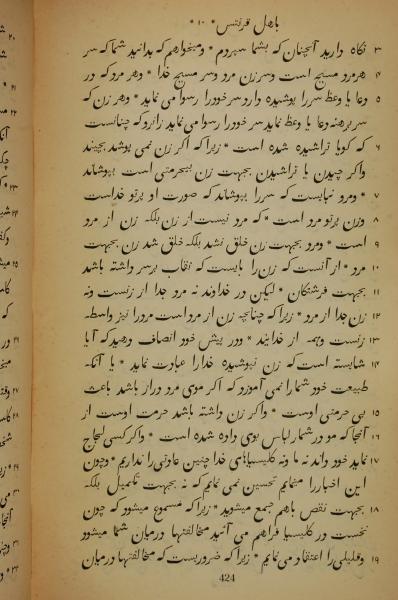 باهل قرنتس * ۱۰ *
۳ نگاه دارید آنچنان که بشما سپردم * ومیخواهم که بدانید شما که سر
۴ هرمرد مسیح است وسر زن مرد وسر مسیح خدا * وهر مرد که در
۵ دعا یا وعظ سررا پوشیده دارد سر خودرا رسوا می نماید * وهر زن که
سر برهنه دعا یا وعظ نماید سر خودرا رسوا می نماید زانرو که چنانست
۶ که گویا تراشیده شده است * زیرا که اگر زن نمی پوشد بچیند
واگر چیدن یا تراشیدن بجهت زن بیحرمتی است بپوشاند
۷ * ومرد نبایست که سررا بپوشاند که صورت او پرتو خداست
۸ وزن پرتو مرد است * که مرد نیست از زن بلکه زن از مرد
۹ است * ومرد بجهت زن خلق نشد بلکه خلق شد زن بجهت
۱۰ مرد * از آنست که زن را بایست که نقاب بر سر داشته باشد
۱۱ بجهت فرشتگان * لیکن در خداوند نه مرد جدا از زنست ونه
۱۲ زن جدا از مرد * زیرا که چنانچه زن از مرد است مرد را نیز واسطه
۱۳ زنست وهمه از خدایند * ودر پیش خود انصاف دهید که آیا
۱۴ شایسته است که زن نپوشیده خدا را عبادت نماید * یا آنکه
طبیعت خود شما را نمی آموزد که اگر موی مرد دراز باشد باعث
۱۵ بی حرمتی اوست * واگر زن داشته باشد حرمت اوست از
۱۶ آنجا که مو در شمار لباس بوی داده شده است * واگر کسی لجاج
۱۷ نماید خود داند نه ما ونه کلیسیاهای خدا چنین عادتی را نداریم * وچون
این اخبار را مینمایم تحسین نمی نمایم که نه بجهت تکمیل بلکه
۱۸ بجهت نقص باهم جمع میشوید * زیرا که مسموع میشود که چون
نخست در کلیسیا فراهم می آئید مخالفتها درمیان شما میشود
۱۹ وقلیلی را اعتقاد می نمایم * زیرا که ضروریست که مخالفتها درمیان
424